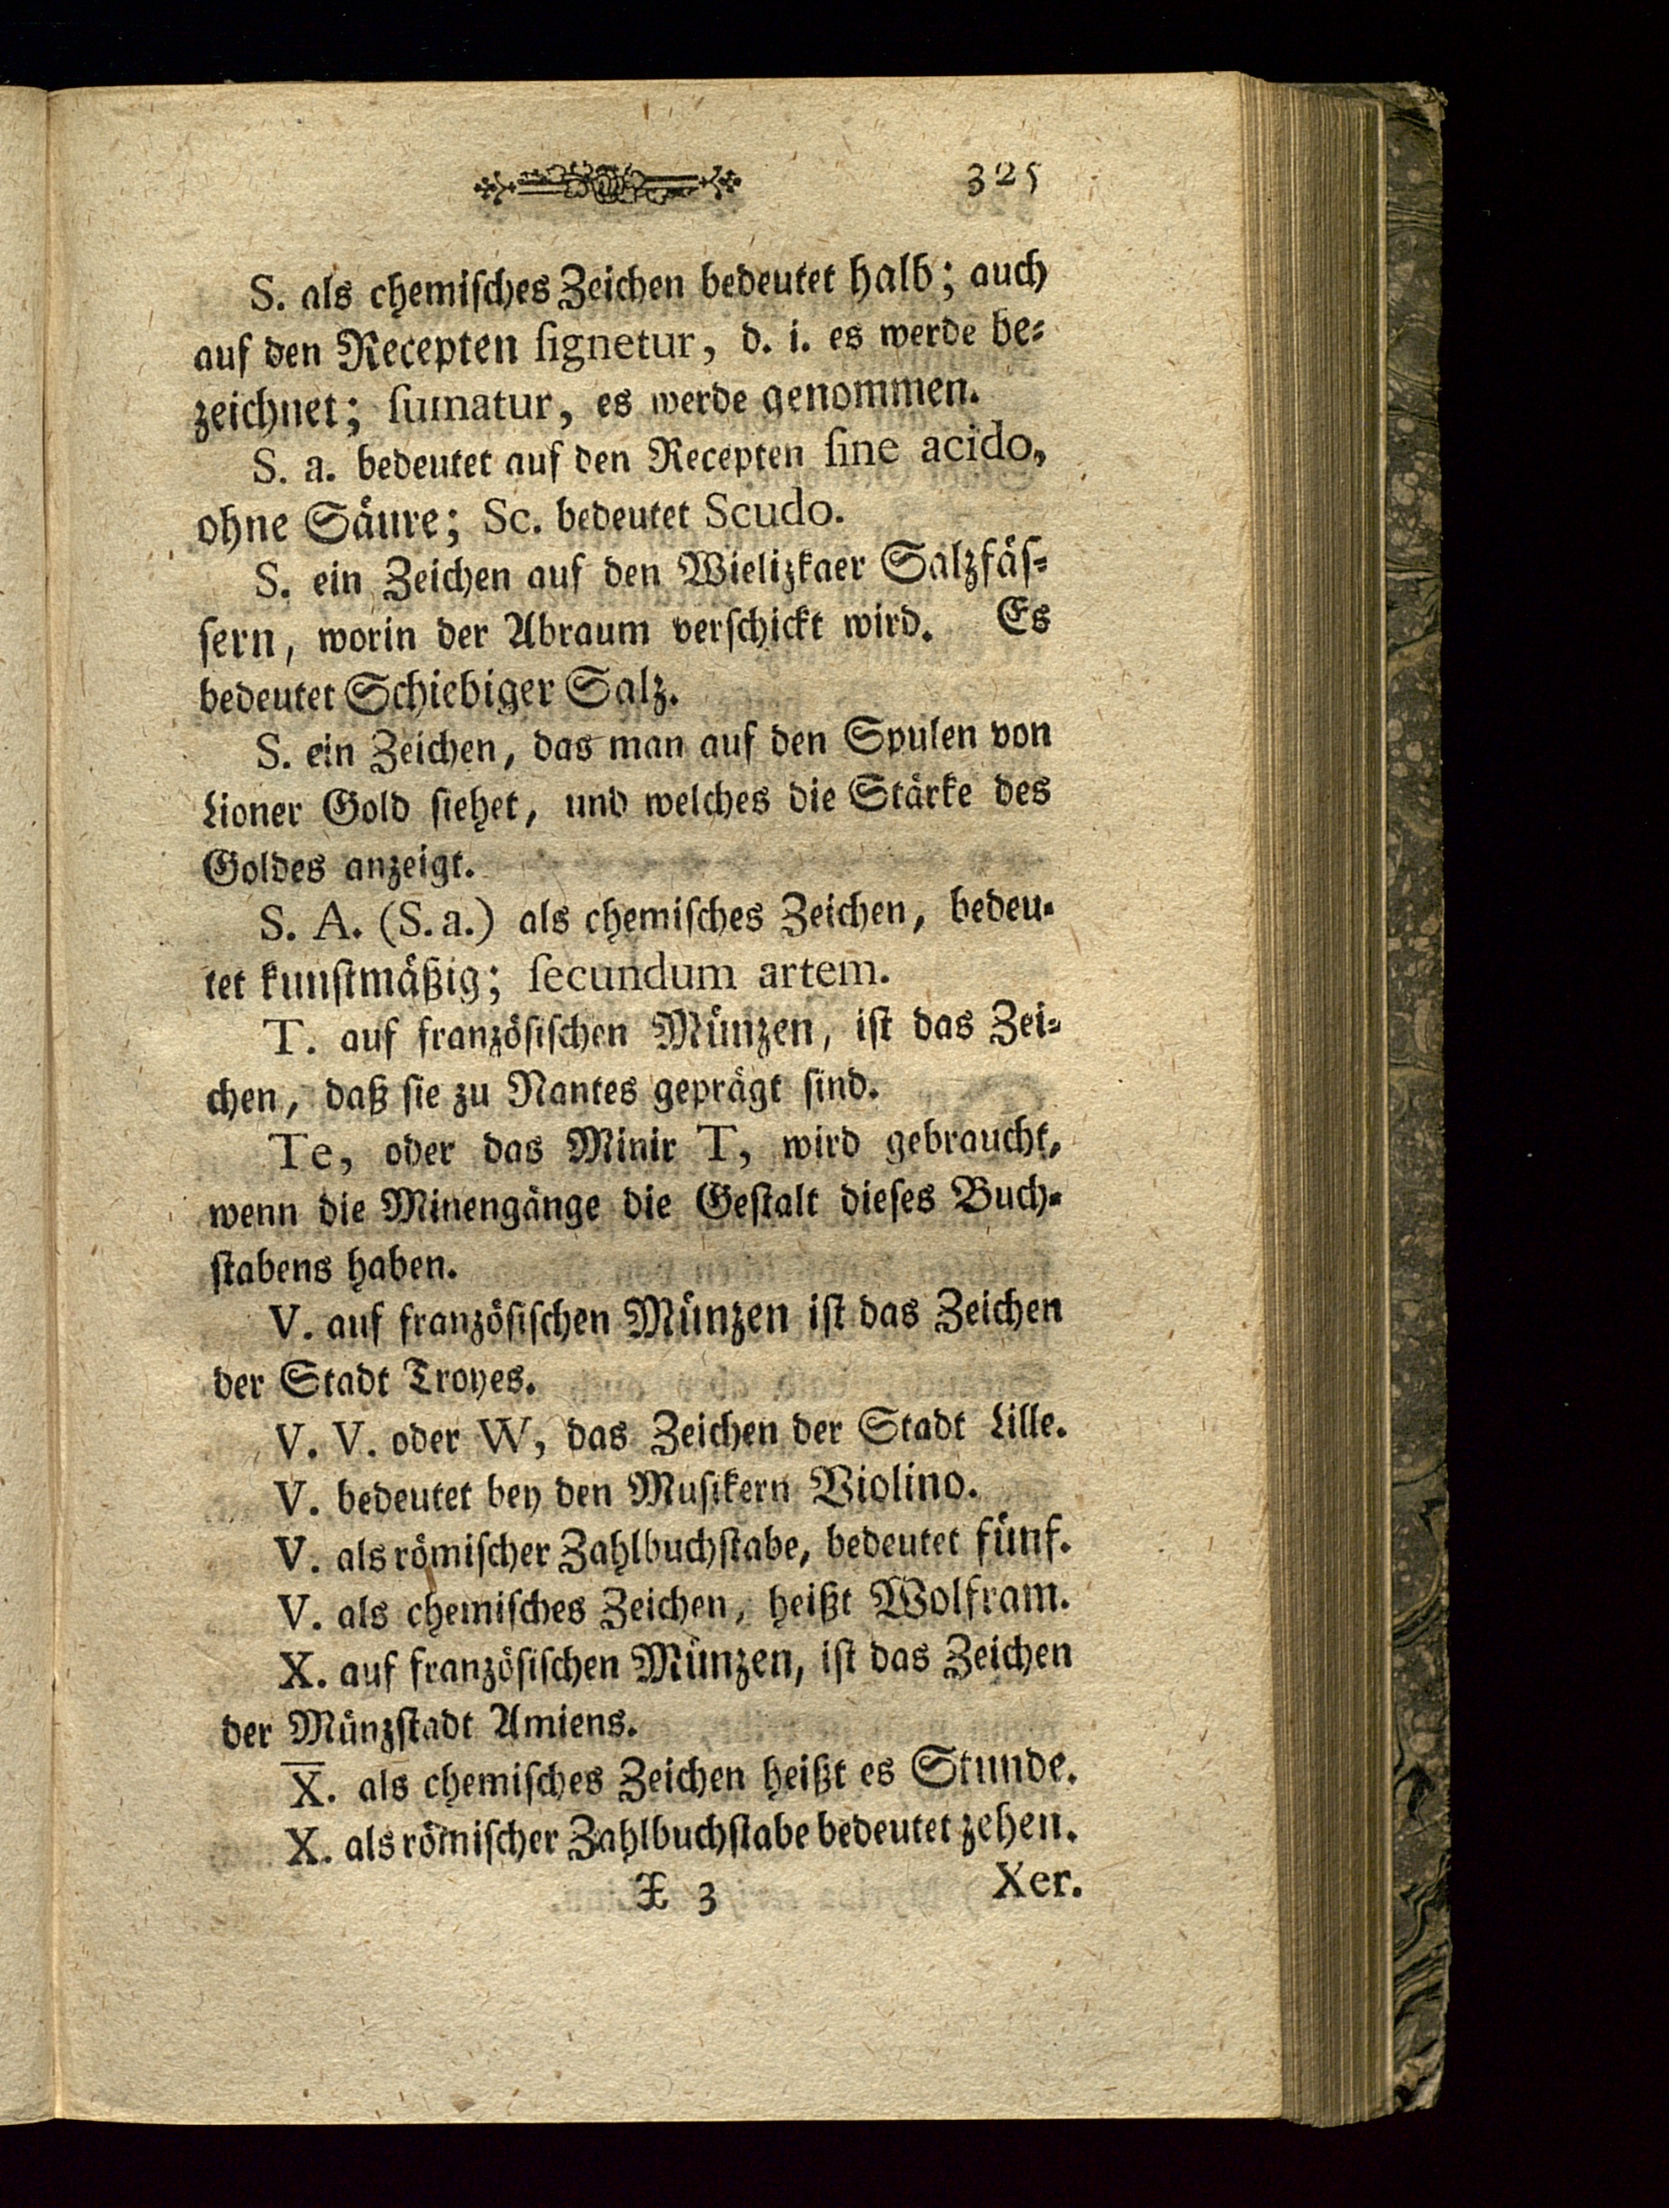 325
S. als chemiſches Zeichen bedeutet halb; auch
auf den Recepten ſignetur, d. i. es werde be⸗
zeichnet; ſumatur, es werde genommen.
S. a. bedeutet auf den Recepten ſine acido,
ohne Säure; Sc. bedeutet Scudo.
S. ein Zeichen auf den Wielizkaer Salzfäſ⸗
ſern, worin der Abraum verſchickt wird. Es
bedeutet Schiebiger Salz.
S. ein Zeichen, das man auf den Spulen von
Lioner Gold ſiehet, und welches die Stärke des
Goldes anzeigt.
S. A. (S. a.) als chemiſches Zeichen, bedeu⸗
tet kunſtmäßig; ſecundum artem.
T. auf franzöſiſchen Münzen, iſt das Zei⸗
chen, daß ſie zu Nantes geprägt ſind.
Te, oder das Minir T, wird gebraucht,
wenn die Minengänge die Geſtalt dieſes Buch⸗
ſtabens haben.
V. auf franzöſiſchen Münzen iſt das Zeichen
der Stadt Troyes.
V. V. oder W, das Zeichen der Stadt Lille.
V. bedeutet bey den Muſikern Violino.
V. als römiſcher Zahlbuchſtabe, bedeutet fünf.
V. als chemiſches Zeichen, heißt Wolfram.
X. auf franzöſiſchen Münzen, iſt das Zeichen
der Münzſtadt Amiens.
X̅. als chemiſches Zeichen heißt es Stunde.
X. als römiſcher Zahlbuchſtabe bedeutet zehen.
X 3 Xer.